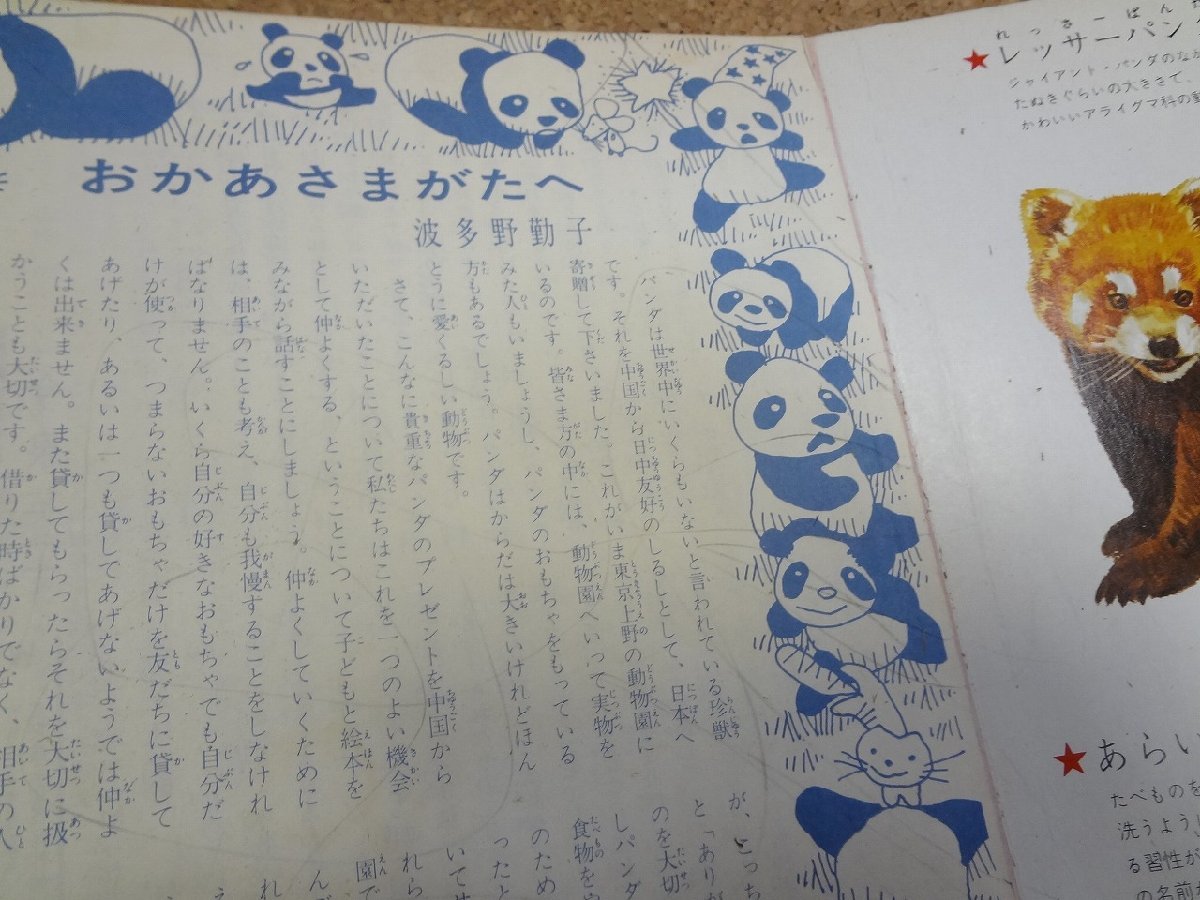 おかあさまがたへ
波多野勤子
パンダは世界中にいくらもいないと言われている珍獣
です。それを中国から日中友好のしるしとして、日本へ
寄贈して下さいました。これがいま東京上野の動物園に
いるのです。皆さま方の中には、動物園へいって実物を
みた人もいましょうし、パンダのおもちゃをもっている
方もあるでしょう。パンダはからだは大きいけれどほん
とうに愛くるしい動物です。
さて、こんなに貴重なパンダのプレゼントを中国から
いただいたことについて私たちはこれを一つのよい機会
として仲よくする、ということについて子どもと絵本を
みながら話すことにしましょう。仲よくしていくために
は、相手のことも考え、自分も我慢することをしなけれ
ばなりません。いくら自分の好きなおもちゃでも自分だ
けが使って、つまらないおもちゃだけを友だちに貸して
あげたり、あるいは一つも貸してあげないようでは仲よ
くは出来ません。また貸してもらったらそれを大切に扱
かうことも大切です。借りた時ばかりでなく、相手の人
が、こっち
と「ありが
のを大切
しパンダ
食物をや
のため
ったと
いてせ
れら
園で
んど
れ
れっさーぱん
★レッサーパン
ジャイアント・パンダのなか
たぬきぐらいの大きさで、
かわいいアライグマ科の動
★あらい
たべものを
洗うように
る習性が
の名前が